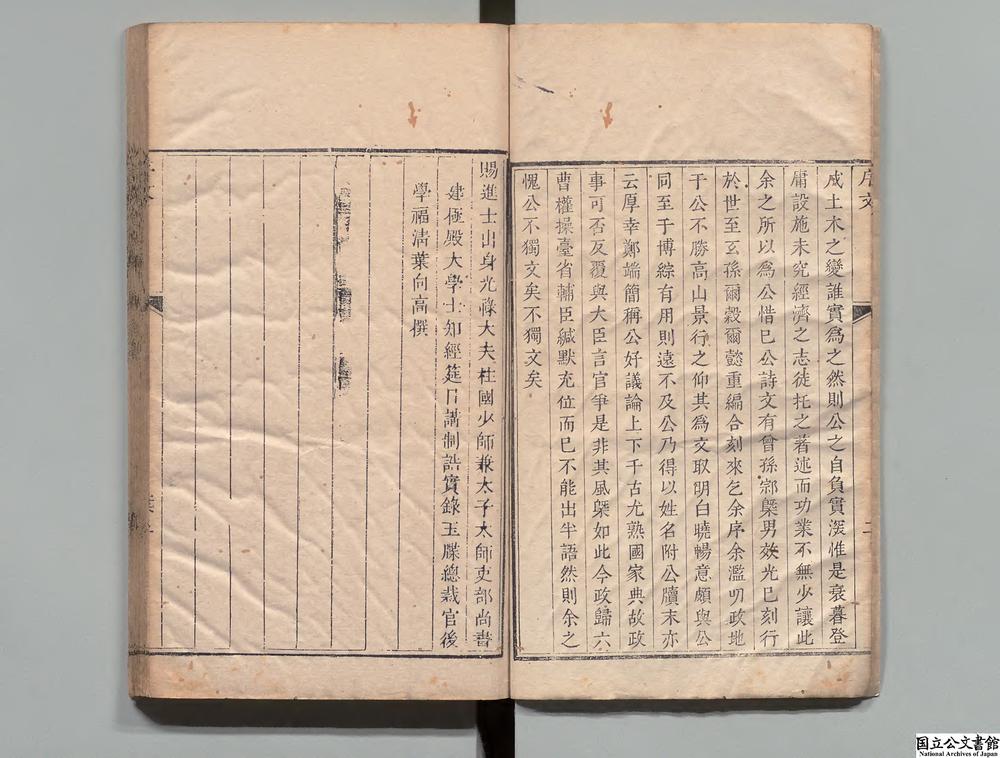 序文
二
成土木之變誰實為之然則公之自負實深惟是衰暮登
庸設施未究經濟之志徒托之著述而功業不無少讓此
余之所以為公惜巳公詩文有曾孫郷㮣男效光巳刻行
於世至玄孫爾縠爾懿重編合刻來乞余序余濫叨政地
于公不勝高山景行之仰其為文取明白曉暢意頗與公
同至于博綜有用則遠不及公乃得以姓名附公牘末亦
云厚幸鄭端簡稱公好議論上下千古尤熟國家典故政
事可否反覆與大臣言官爭是非其風槩如此今政歸六
曹權操臺省輔臣緘默充位而巳不能出半語然則余之
愧公不獨文矣不獨文矣
賜進士出身光祿大夫柱國少師兼太子太師吏部尚書
建極殿大學士知經筵日講制誥實錄玉牒總裁官後
學福清葉向高撰
国立公文書館
National Archives of Japan